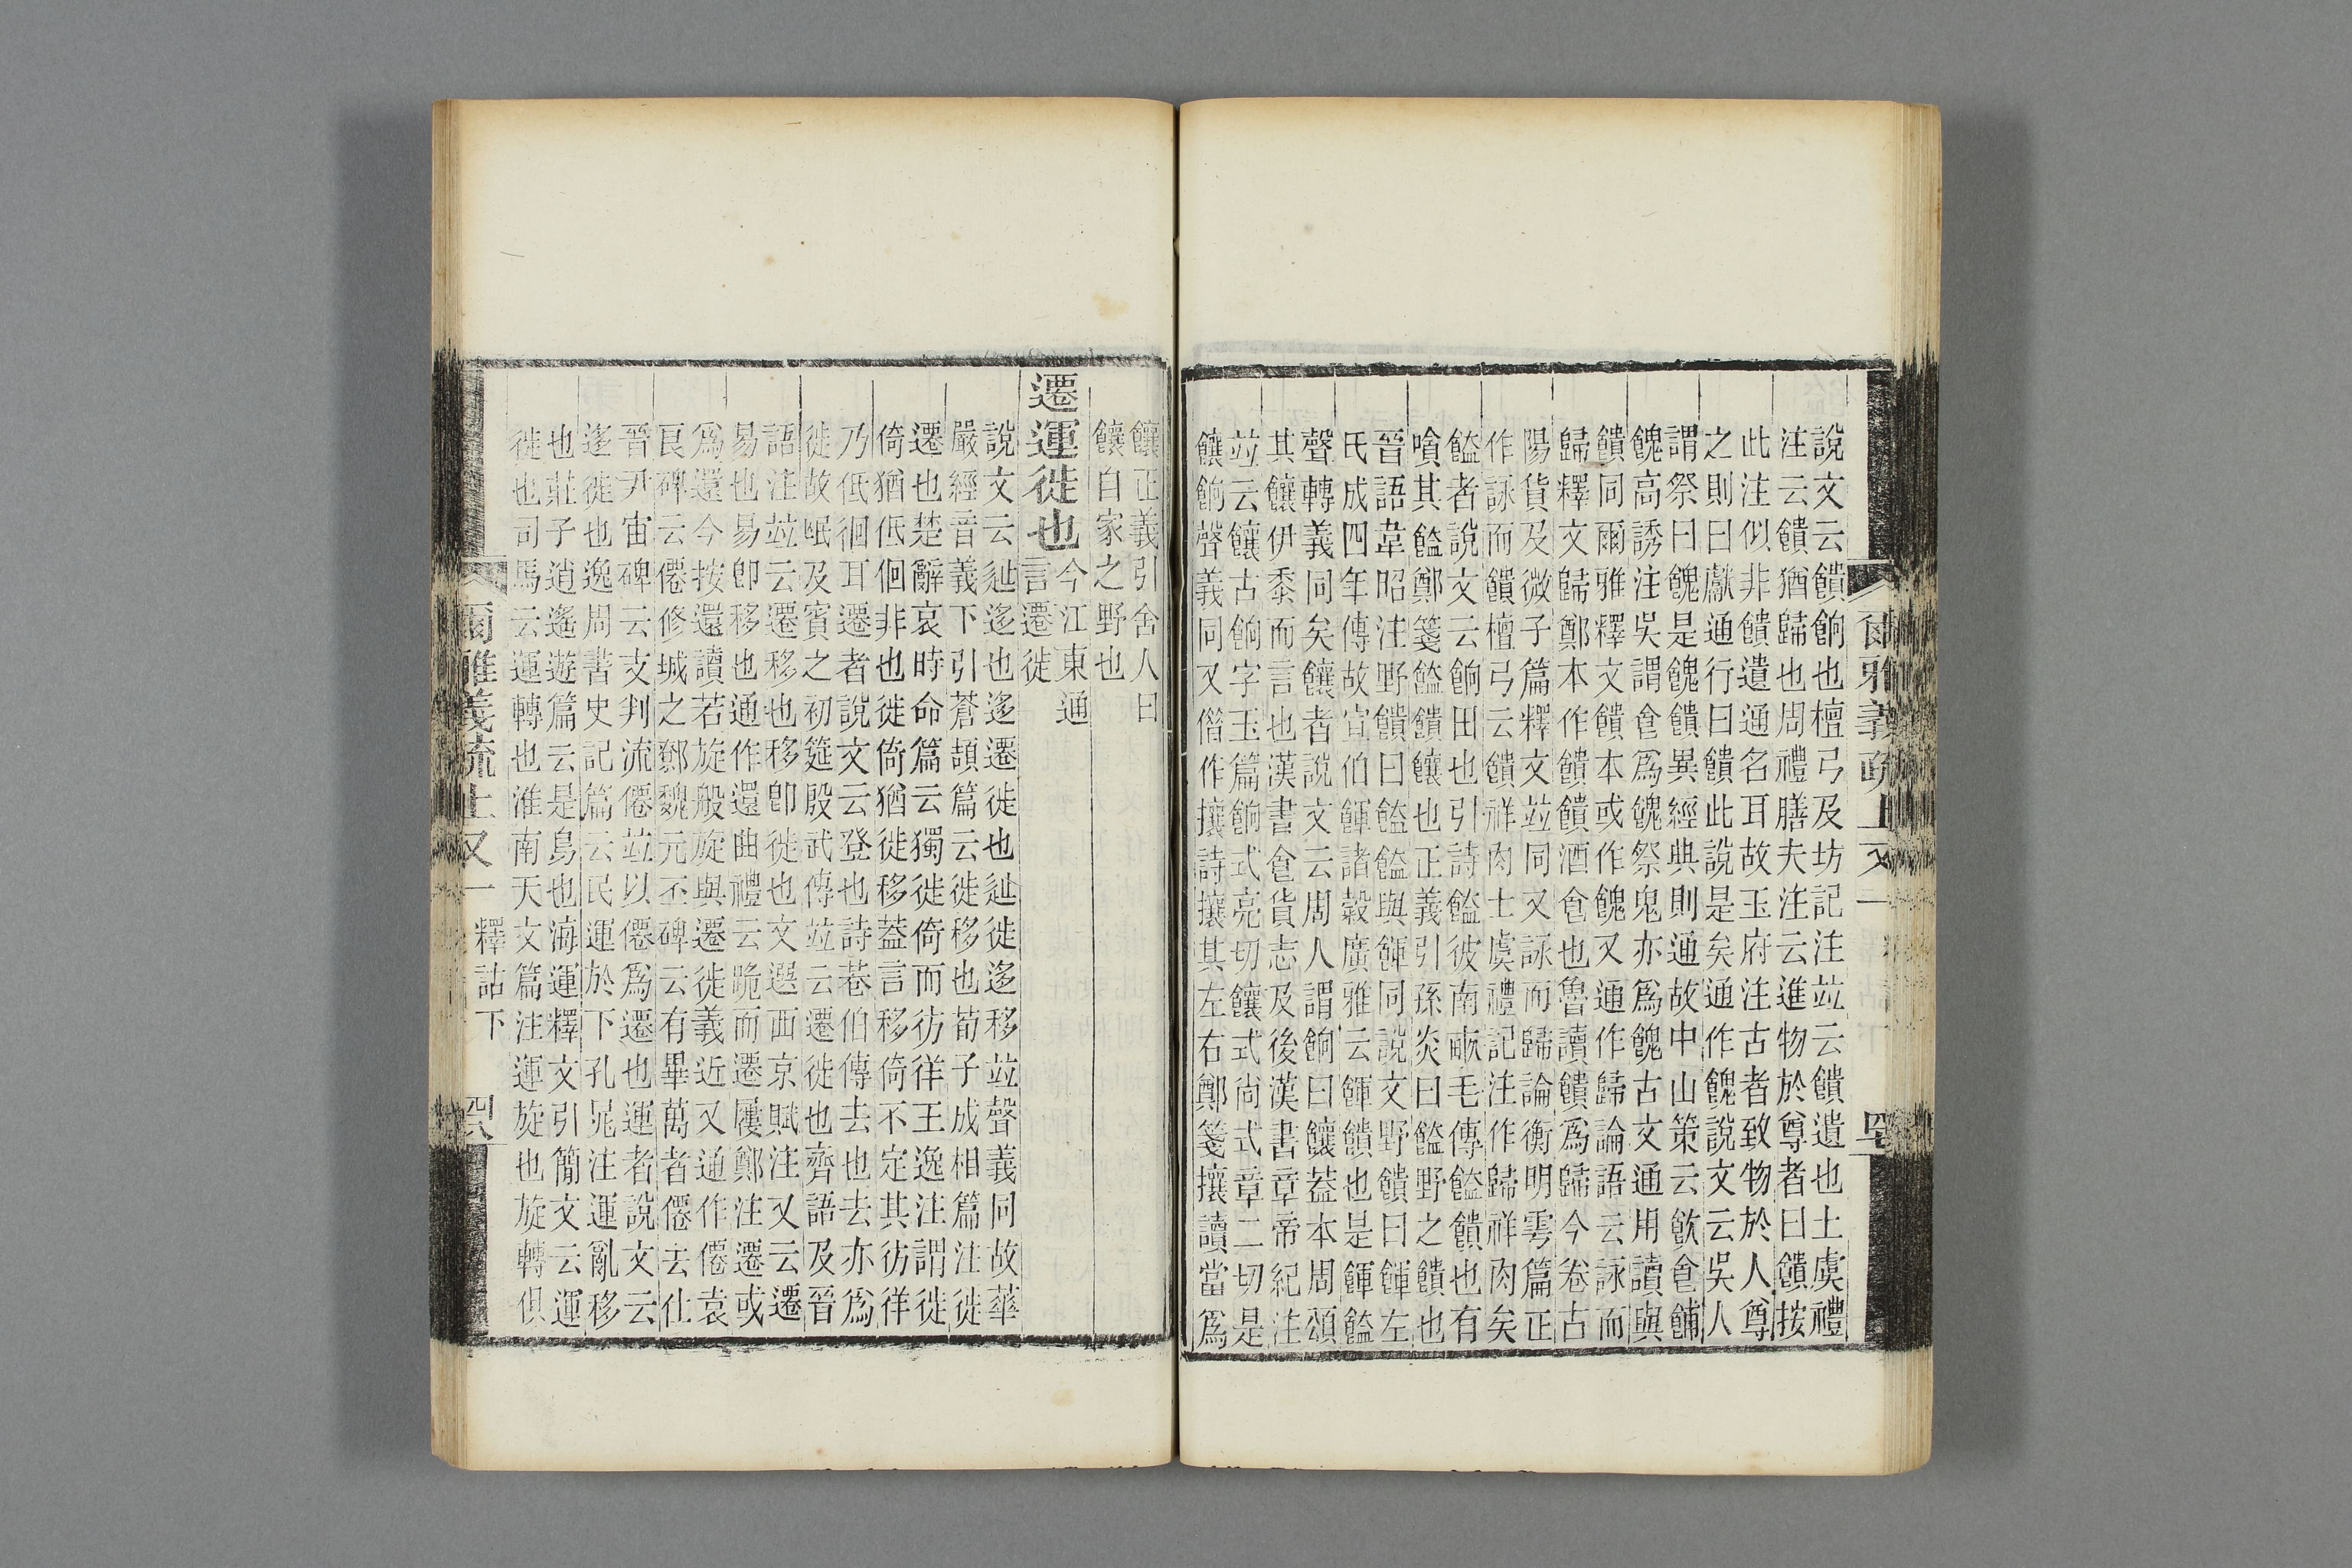 說文云饋餉也檀弓及坊記注竝云饋遺也士虞禮
注云饋猶歸也周禮膳夫注云進物於尊者曰饋按
此注似非饋遺通名耳故玉府注古者致物於人尊
之則曰獻通行曰饋此說是矣通作餽說文云吳人
謂祭曰餽是餽饋異經典則通故中山策云飲食餔
餽高誘注吳謂食爲餽祭鬼亦爲餽古文通用讀與
饋同爾雅釋文饋本或作餽又通作歸論語云詠而
歸釋文歸鄭本作饋饋酒食也魯讀饋爲歸今卷古
陽貨及微子篇釋文竝同又詠而歸論衡明雩篇正
作詠而饋檀弓云饋祥肉士虞禮記注作歸祥肉矣
饁者說文云餉田也引詩饁彼南畝毛傳饁饋也有
嗿其饁鄭箋饁饋饟也正義引孫炎曰饁野之饋也
晉語韋昭注野饋曰饁饁與餫同說文野饋曰餫左
氏成四年傳故宣伯餫諸榖廣雅云餫饋也是餫饁
聲轉義同矣饟者說文云周人謂餉曰饟葢本周頌
其饟伊黍而言也漢書食貨志及後漢書章帝紀注
竝云饟古餉字玉篇餉式亮切饟式尚式章二切是
饟餉聲義同又偕作攘詩攘其左右鄭箋攘讀當爲
爾雅義疏上又一
饟正義引舍人曰
饟自家之野也
遷運徙也
今江東通
言遷徙
說文云辿迻也迻遷徙也辿徙迻移竝聲義同故華
嚴經音義下引蒼頡篇云徙移也荀子成相篇注徙
遷也楚辭哀時命篇云獨徙倚而彷徉王逸注謂徙
倚猶低佪非也徙倚猶徙移葢言移倚不定其彷徉
乃低徊耳遷者說文云登也詩巷伯傳去也去亦爲
徙故氓及賓之初筵殷武傳竝云遷徙也齊語及晉
語注竝云遷移也移卽徙也文選西京賦注又云遷
易也易卽移也通作還曲禮云跪而遷屨鄭注遷或
爲還今按還讀若旋般旋與遷徙義近又通作僊袁
良碑云僊修城之鄭魏元丕碑云有畢萬者僊去仕
晉尹宙碑云支判流僊竝以僊爲遷也運者說文云
迻徙也逸周書史記篇云民運於下孔晁注運亂移
也莊子逍遙遊篇云是鳥也海運釋文引簡文云運
徙也司馬云運轉也淮南天文篇注運旋也旋轉俱
爾雅義疏上又一
釋詁下
四六